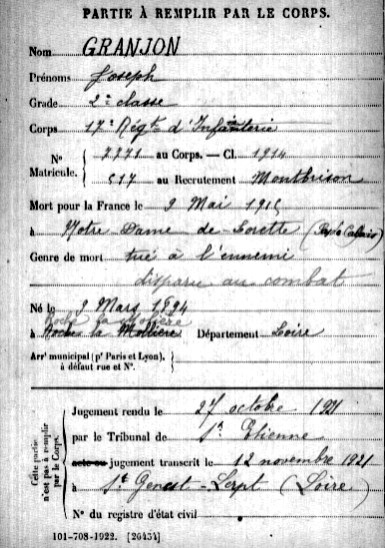 PARTIE À REMPLIR PAR LE CORPS.
Nom GRANJON
Prénoms Joseph
Grade 2e classe
Corps 17e Régt d'Infanterie
No Matricule. 7771 au Corps. — Cl. 1914
517 au Recrutement Montbrison
Mort pour la France le 9 Mai 1915
à Notre Dame de Lorette (Pas de Calais)
Genre de mort tué à l'ennemi
disparu au combat
Né le 3 Mars 1894
Roche la Molière
à Roche la Mollière Département Loire
Arrt municipal (pr Paris et Lyon), à défaut rue et No.
Cette partie n'est pas à remplir par le Corps.
Jugement rendu le 27 octobre 1921
par le Tribunal de St Etienne
acte ou jugement transcrit le 12 novembre 1921
à St Genest-Lerpt (Loire)
No du registre d'état civil
101-708-1922. [26434]